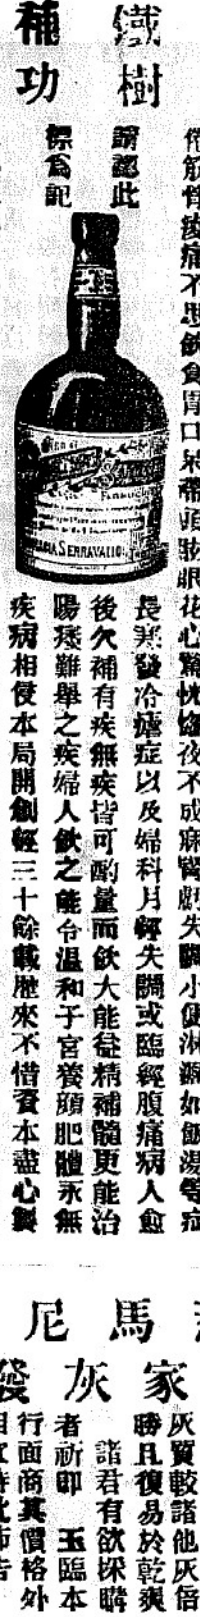 鐵樹
補功
請認此
標爲記
SERRAVALLO
筋骨痠痛不思飲食胃口呆滯頭眩眼花心驚恍惚夜不成寐腎虧失調小便淋漏如飯湯等症
長寒發冷瘧症以及婦科月經失調或臨經腹痛病人愈
後欠補有疾無疾皆可酌量而飲大能益精補髓更能治
陽痿難舉之疾婦人飲之能令溫和子宮養顏肥體永無
疾病相侵本局開創經三十餘載歷來不惜資本盡心製
尼馬
發灰家
灰質較諸他灰倍
勝且復易於乾爽
諸君有欲採購
者祈即 玉臨本
行面商其價格外